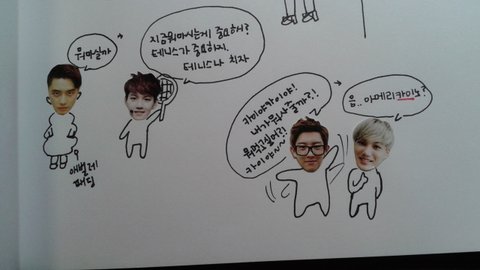 뭐마실까
지금뭐마시는게 중요해?
테니스가 중요하지.
테니스나 치자
애벌레
패딩
카이야카이야!
내가뭐사줄까?!
뭐먹고싶어?!
카이야~
음.. 아메리카이노?